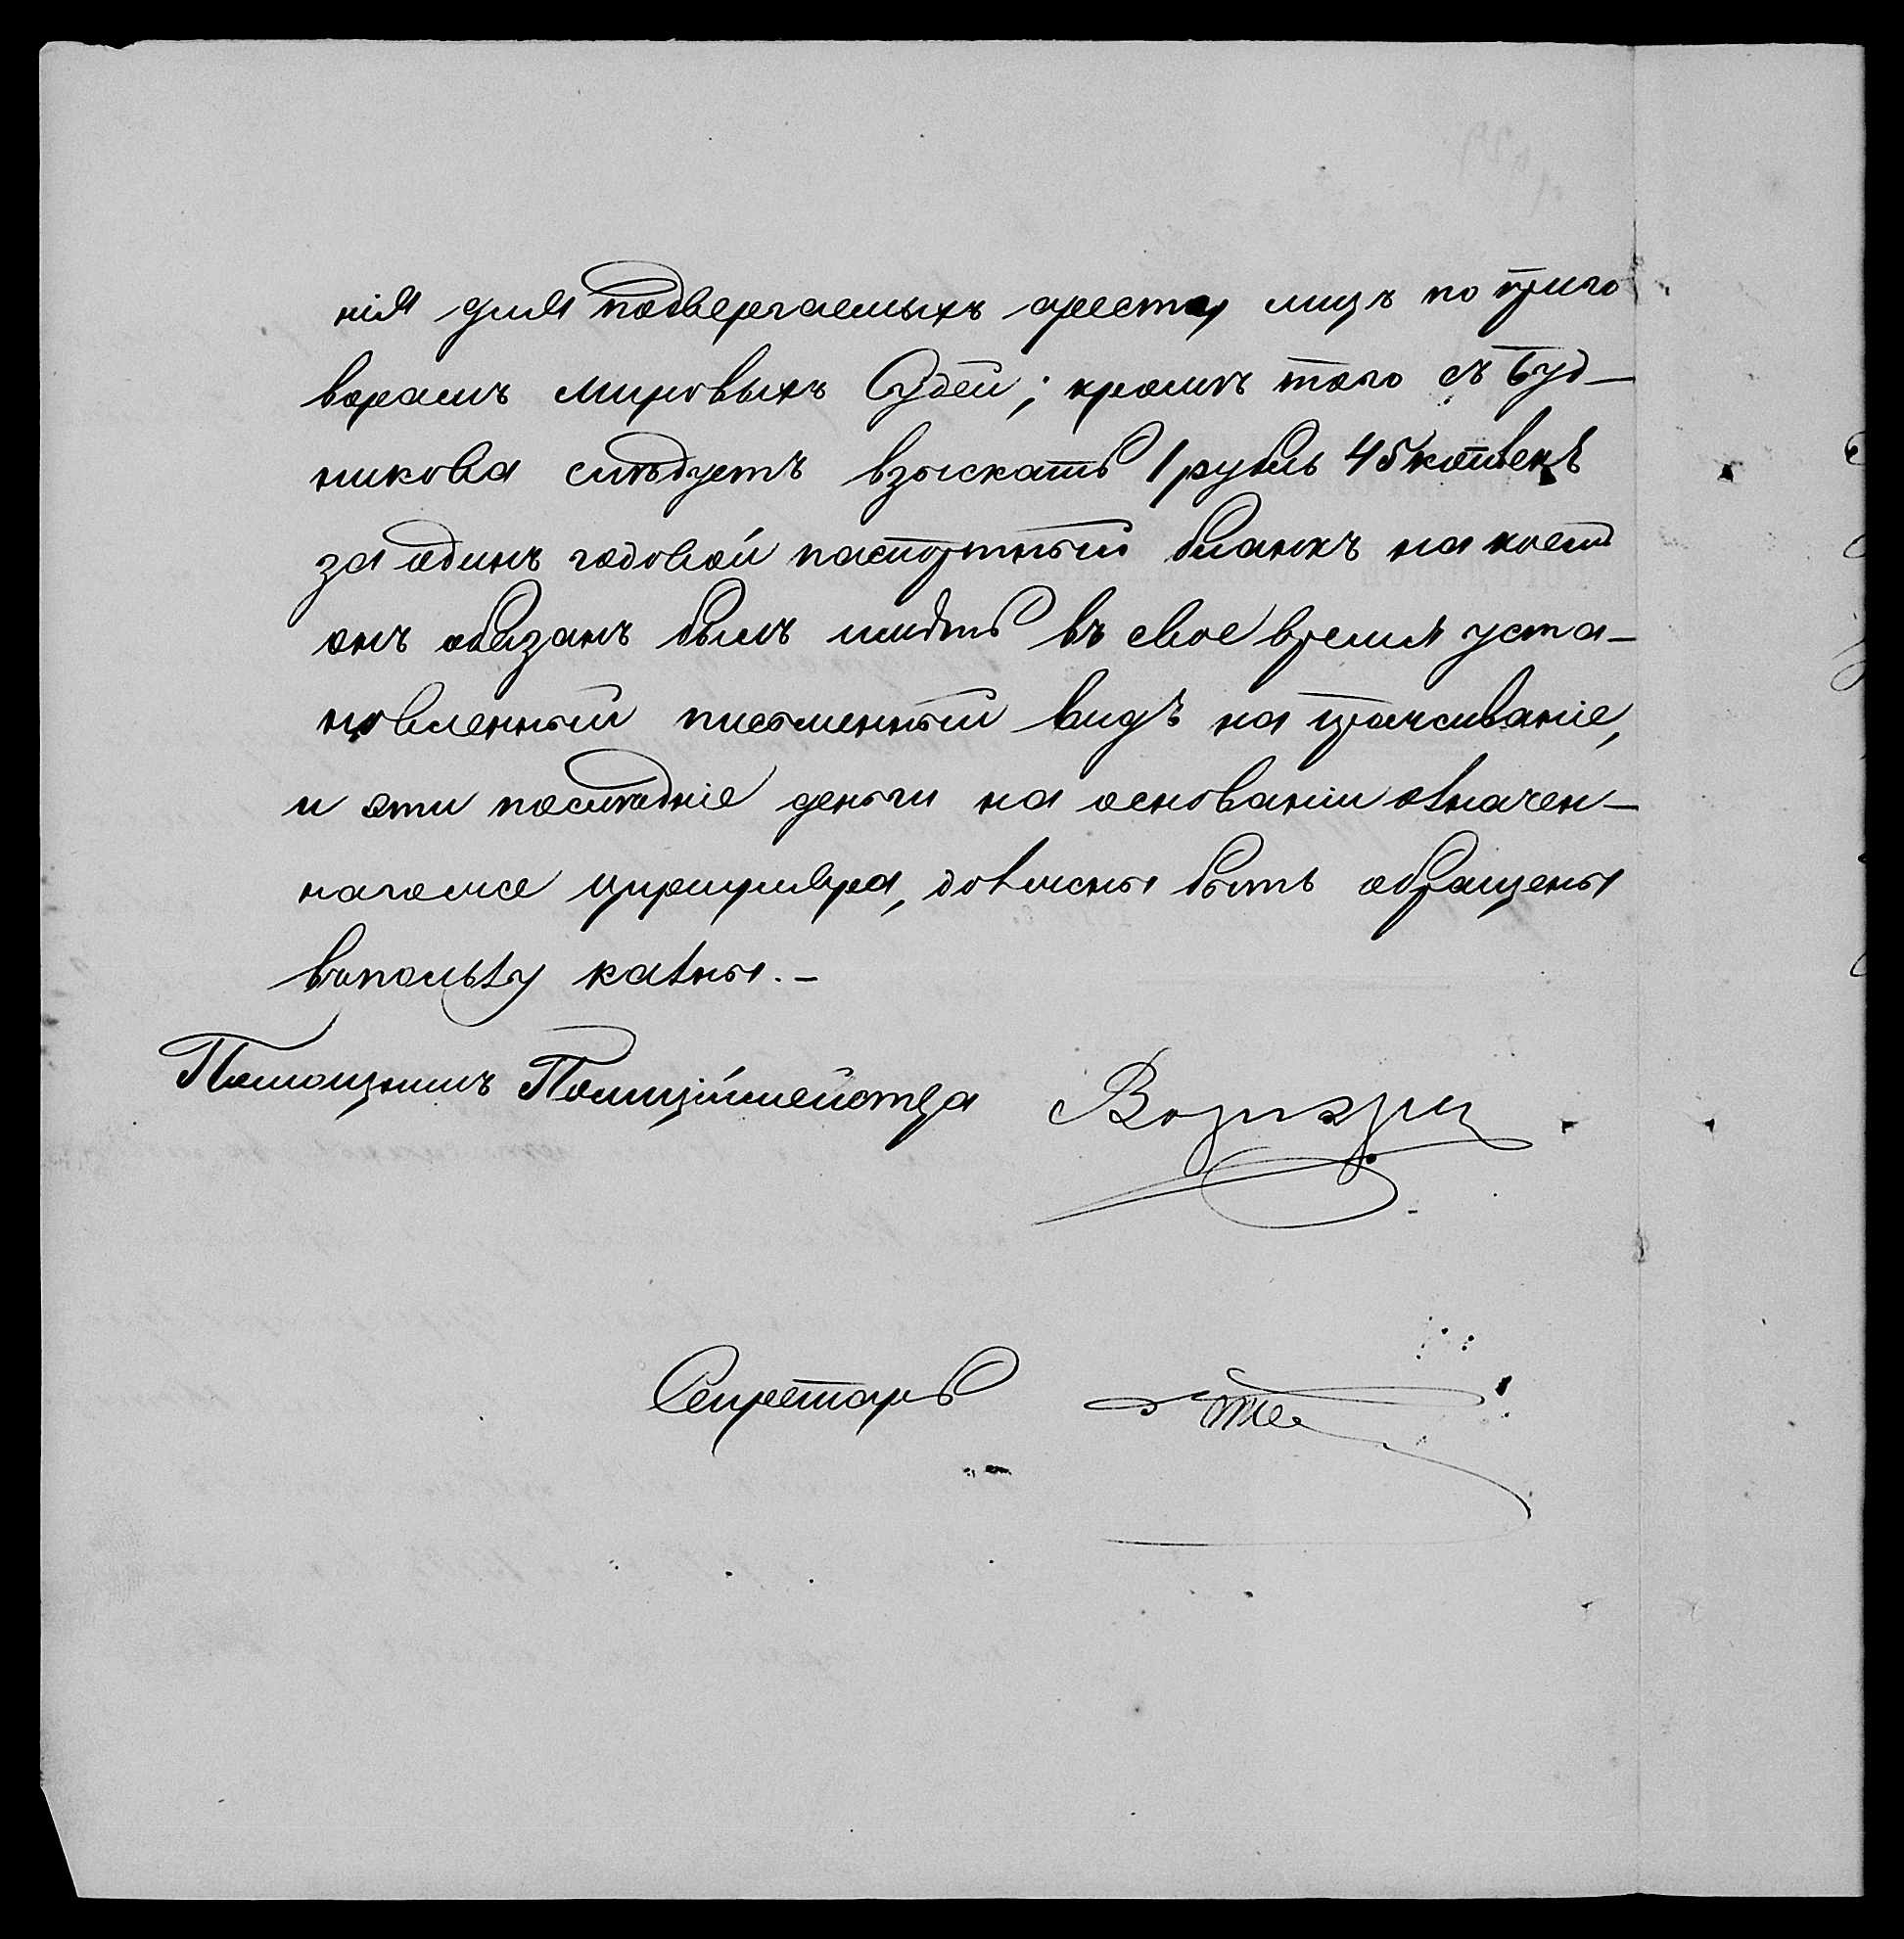 нія для подвергаемыхъ аресту лицъ по приго
ворамъ Мировыхъ Судей; кромѣ того съ Буд-
никова слѣдуетъ взыскать 1 рубль 45 копѣекъ
за одинъ годовой паспортный бланкъ на коемъ
онъ обязанъ былъ имѣть въ свое время уста-
новленный письменный видъ на проживаніе,
и эти послѣдніе деньги на основаніи означен-
нагоже циркуляра, должны быть обращены
въ пользу казны.-
Помощникъ Полиціймейстера
Секретарь